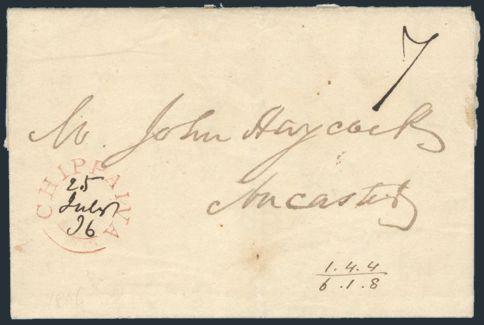 7
Mr. John Haycock
CHIPPAWA
25
July
36
Ancaster
1.4.4
6.1.8